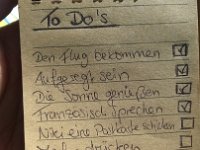 To Do's
Den Flug bekommen
Aufgeregt sein
Die Sonne genießen
Französisch sprechen
Niki eine Postkarte schicken
drücken